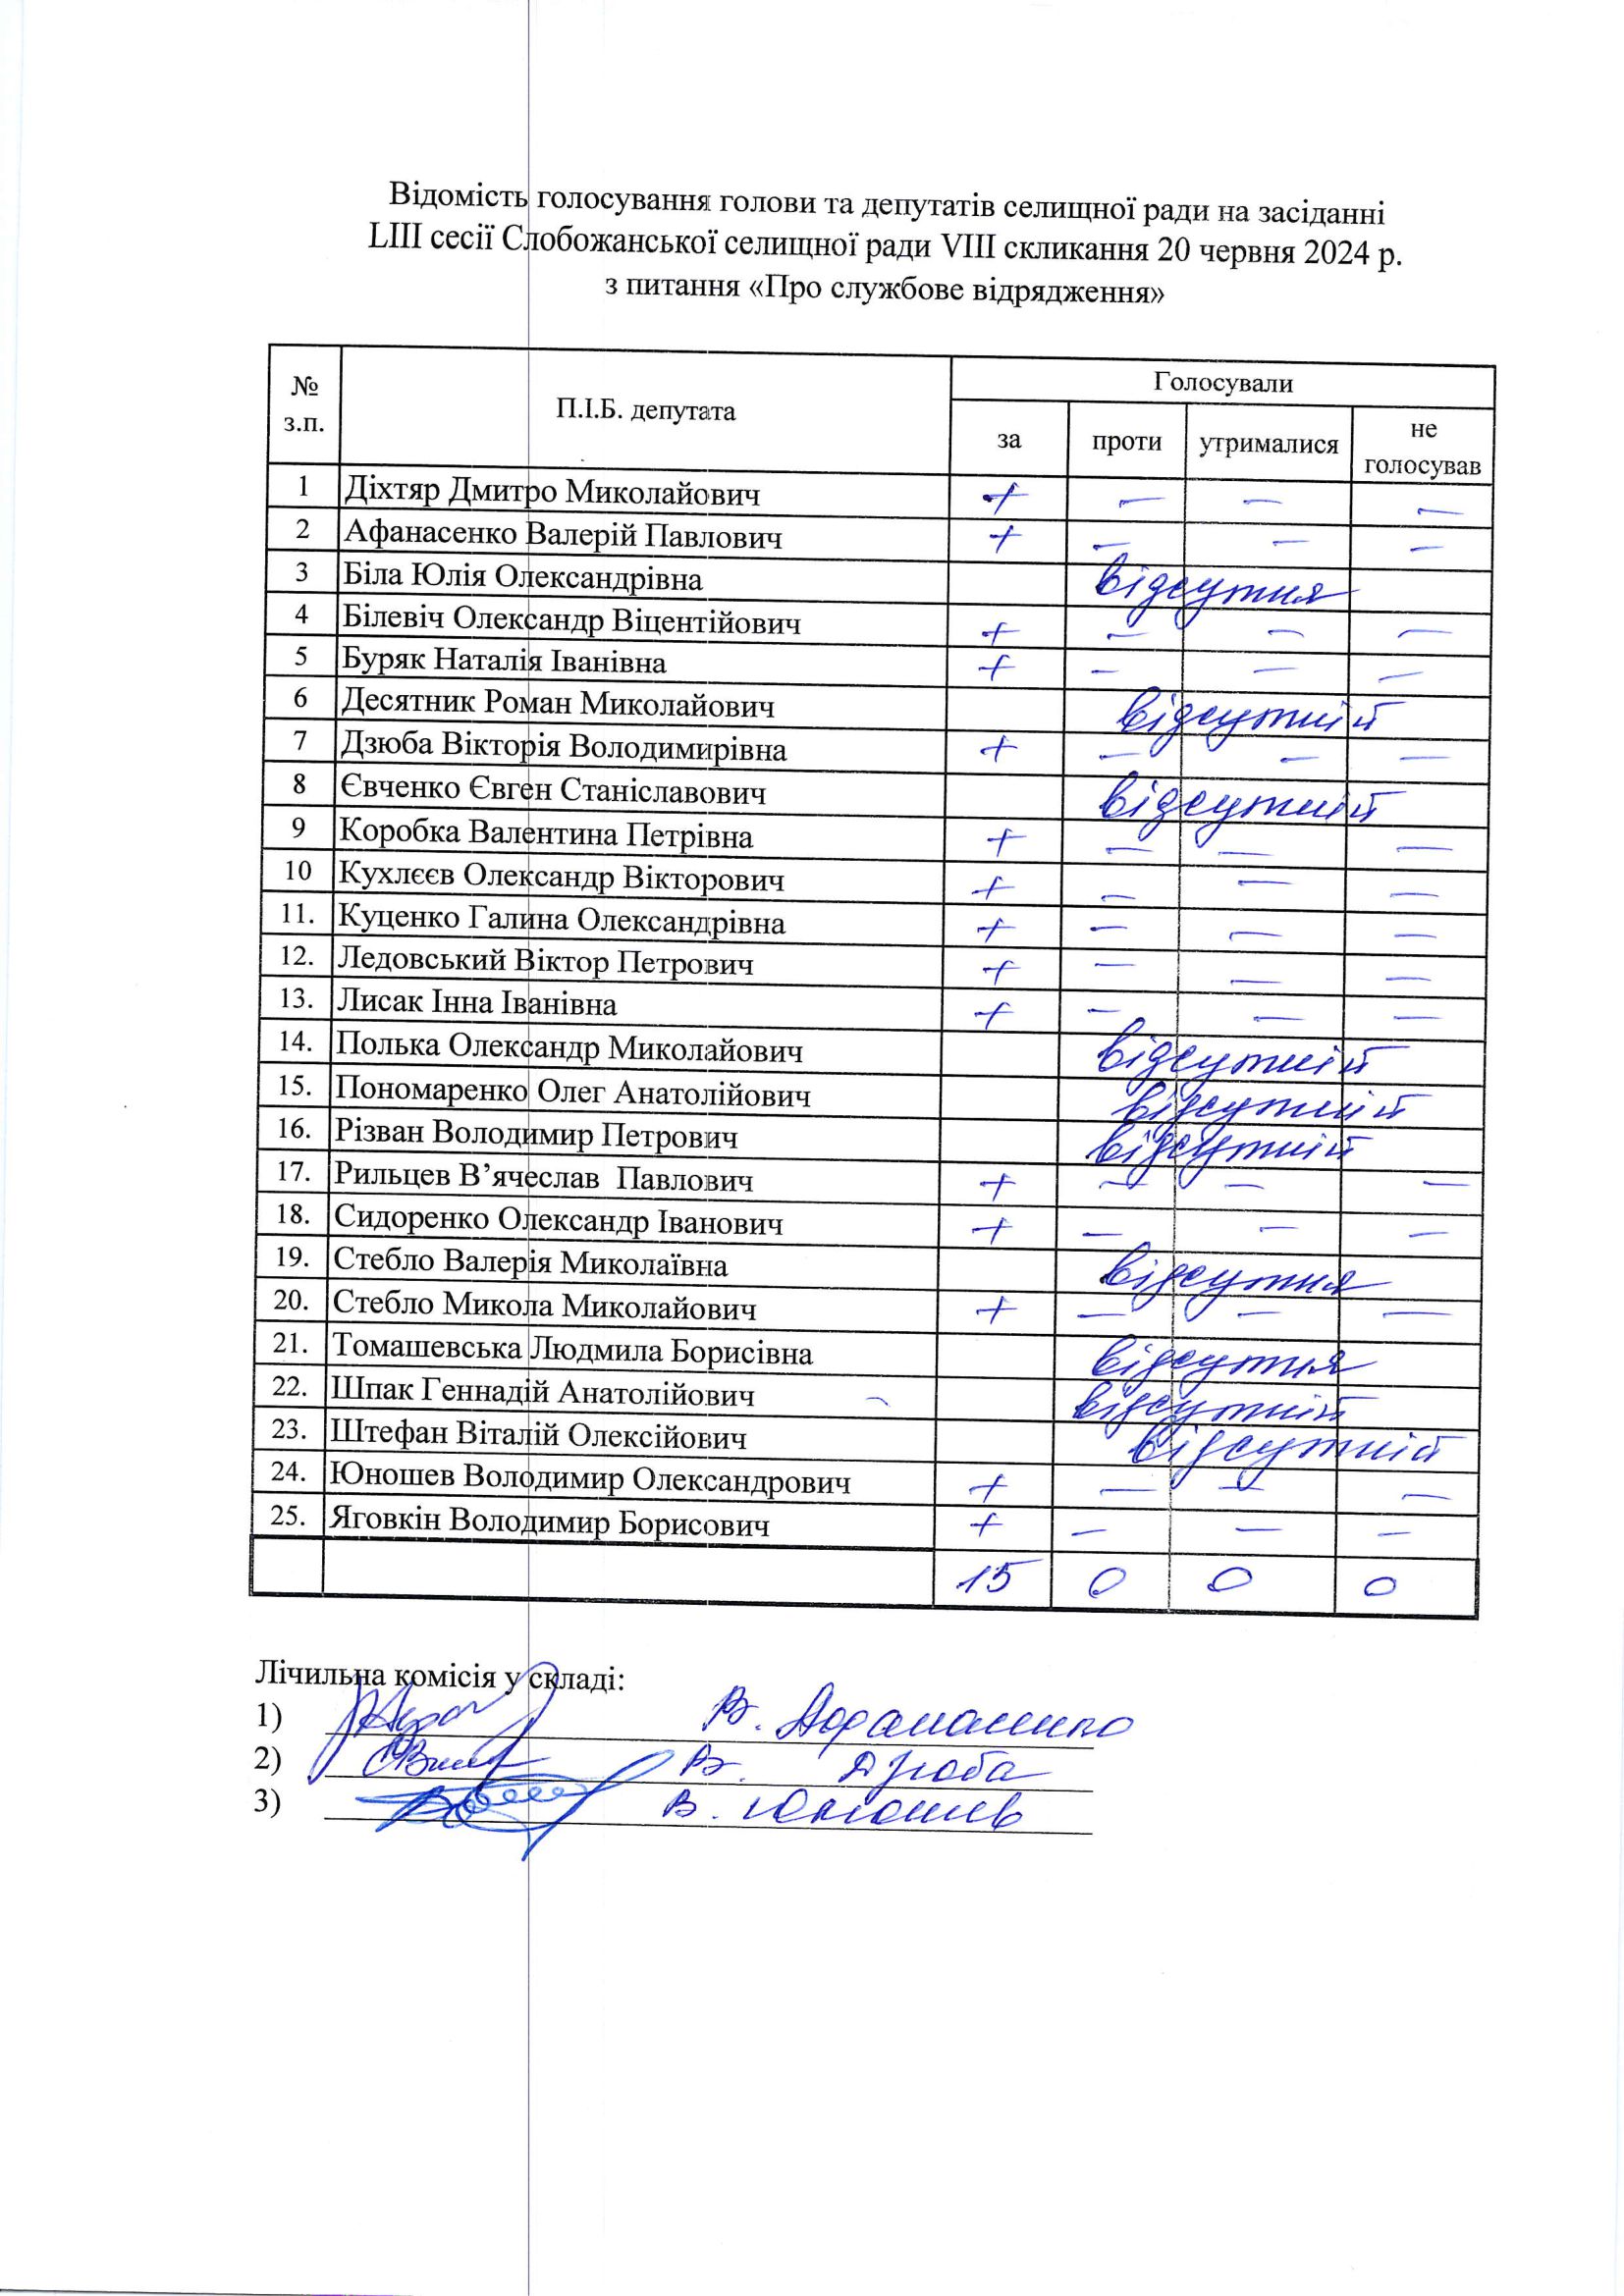 Відомість голосування голови та депутатів селищної ради на засіданні
LIII сесії Слобожанської селищної ради VIII скликання 20 червня 2024 р.
з питання «Про службове відрядження»
№ з.п. П.І.Б. депутата Голосували
за проти утрималися не голосував
1 Діхтяр Дмитро Миколайович + – – –
2 Афанасенко Валерій Павлович + – – –
3 Біла Юлія Олександрівна відсутня
4 Білевіч Олександр Віцентійович + – – –
5 Буряк Наталія Іванівна + – – –
6 Десятник Роман Миколайович відсутній
7 Дзюба Вікторія Володимирівна + – – –
8 Євченко Євген Станіславович відсутній
9 Коробка Валентина Петрівна + – – –
10 Кухлєєв Олександр Вікторович + – – –
11. Куценко Галина Олександрівна + – – –
12. Ледовський Віктор Петрович + – – –
13. Лисак Інна Іванівна + – – –
14. Полька Олександр Миколайович відсутній
15. Пономаренко Олег Анатолійович відсутній
16. Різван Володимир Петрович відсутній
17. Рильцев В’ячеслав Павлович + – – –
18. Сидоренко Олександр Іванович + – – –
19. Стебло Валерія Миколаївна відсутня
20. Стебло Микола Миколайович + – – –
21. Томашевська Людмила Борисівна відсутня
22. Шпак Геннадій Анатолійович відсутній
23. Штефан Віталій Олексійович відсутній
24. Юношев Володимир Олександрович + – – –
25. Яговкін Володимир Борисович + – – –
15 0 0 0
Лічильна комісія у складі:
1) В. Афанасенко
2) В. Дзюба
3) В. Юношев